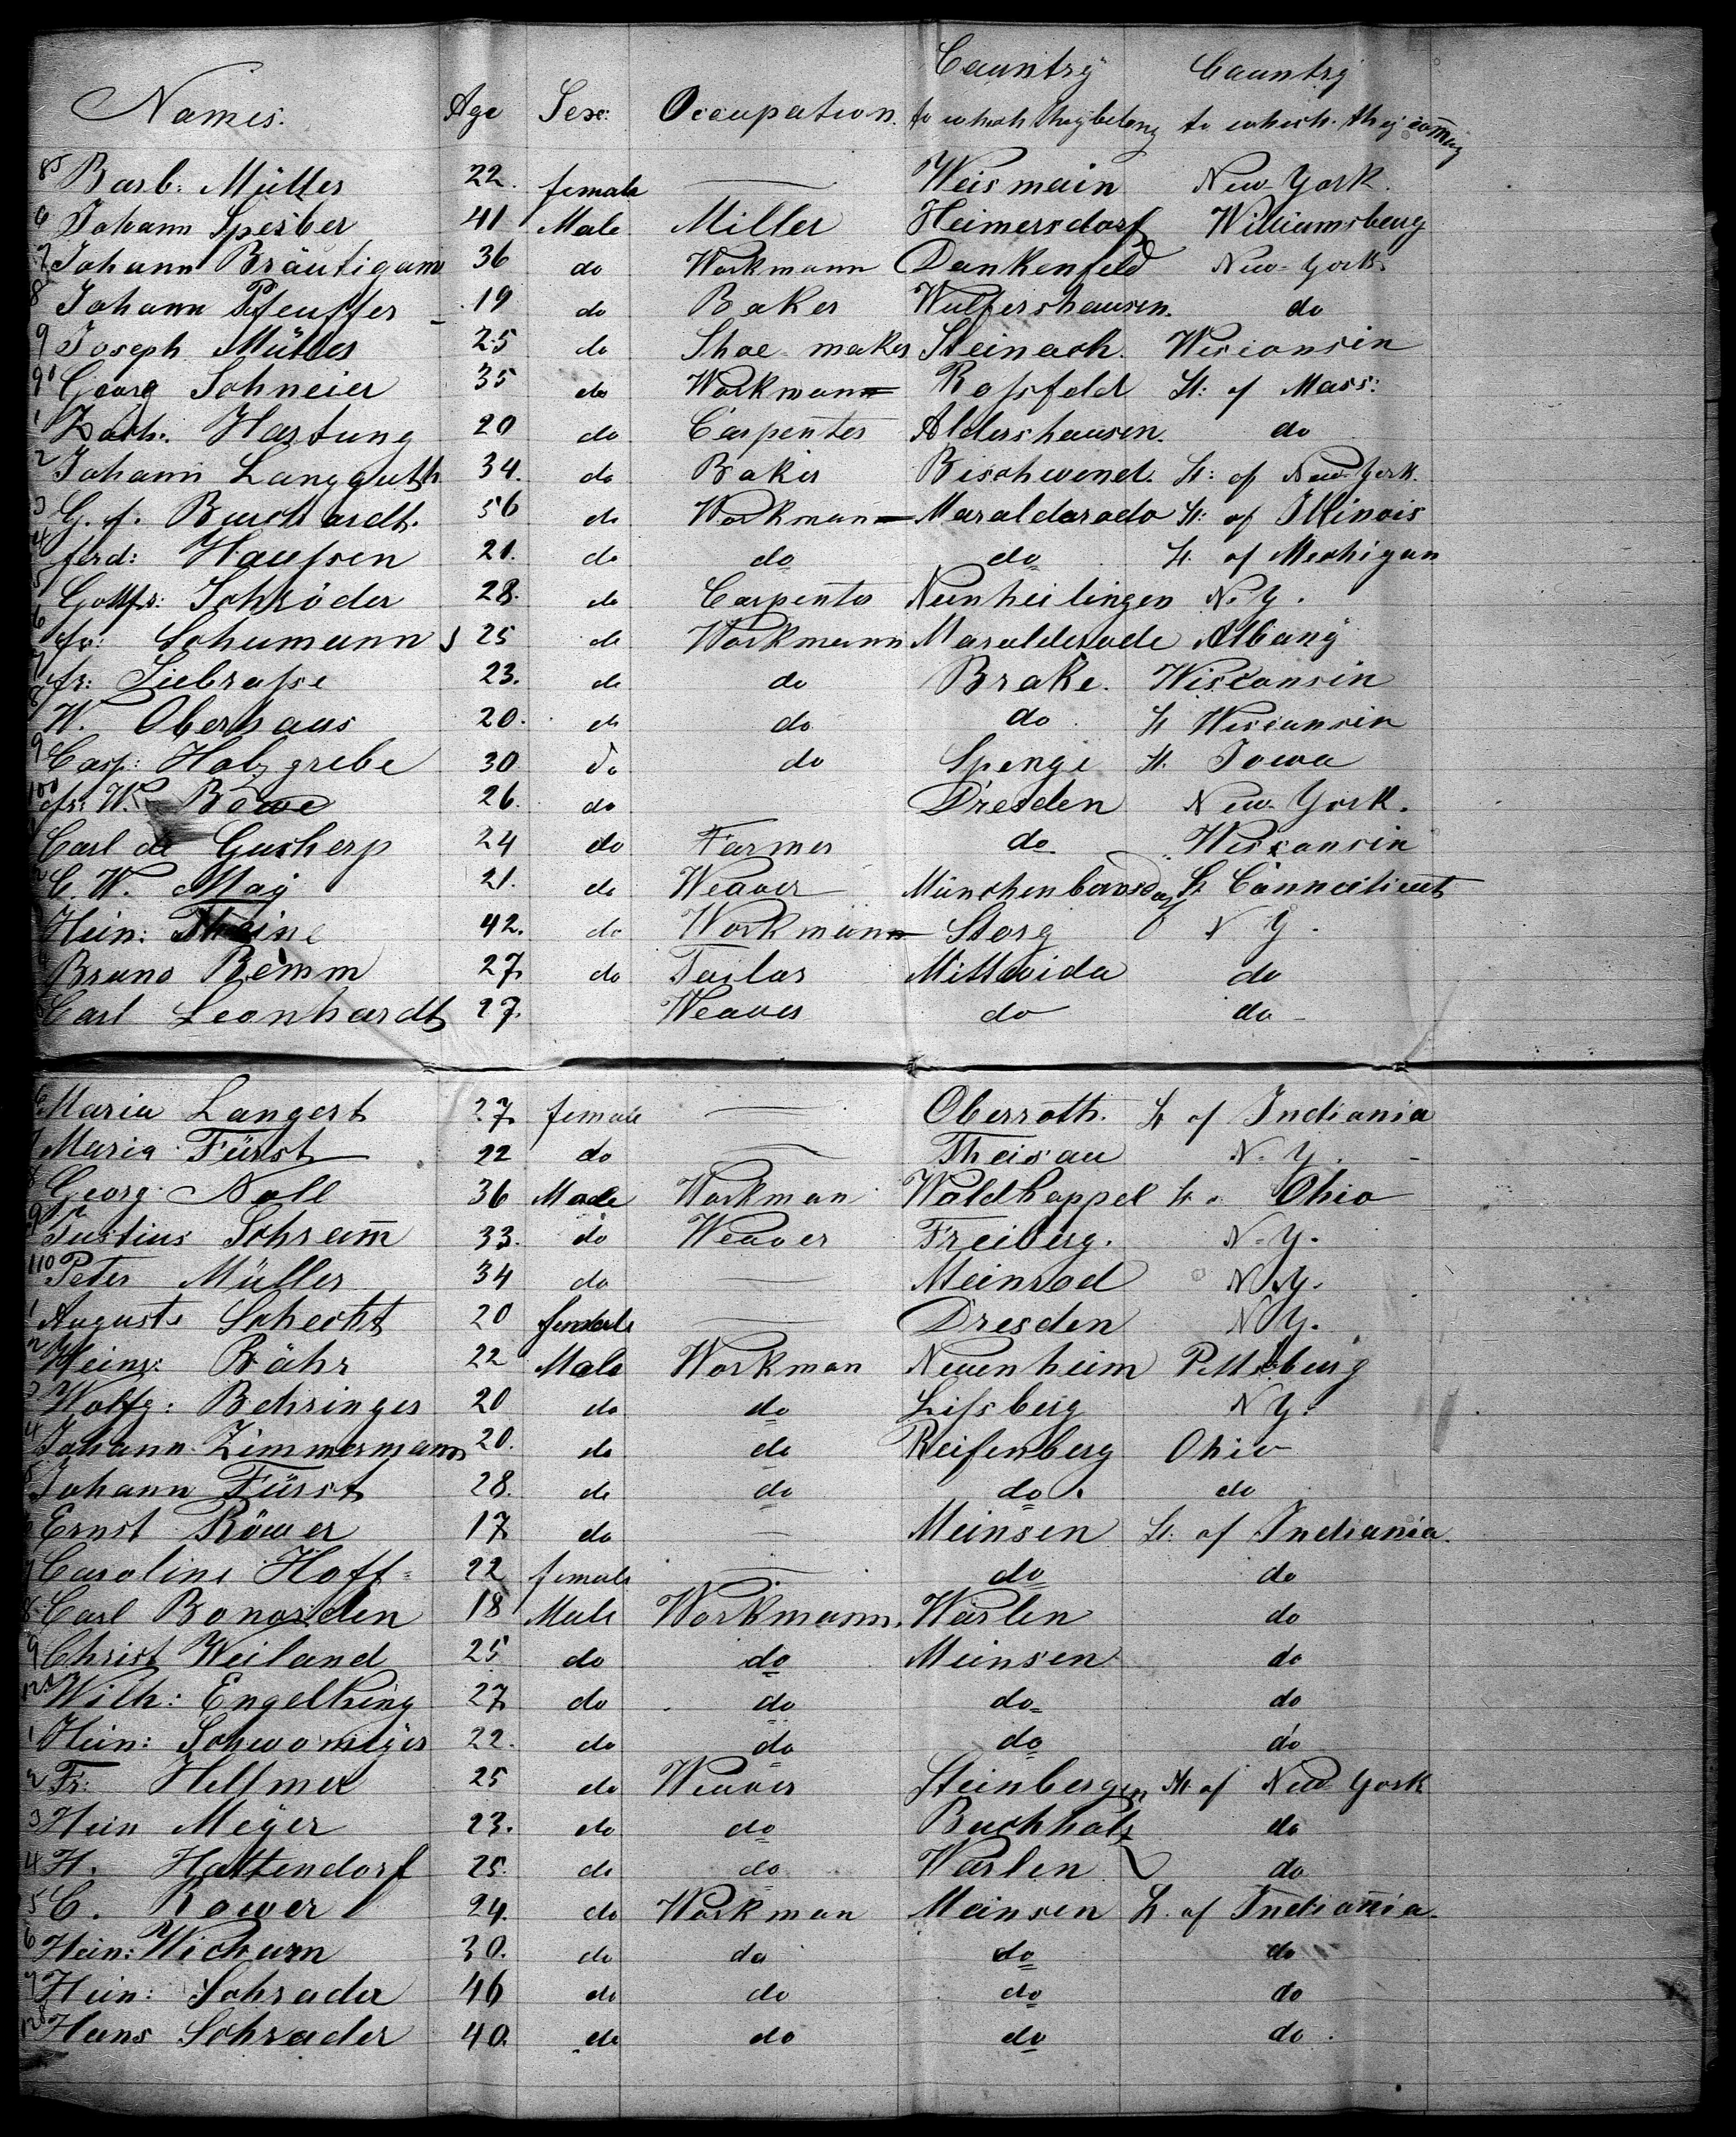 Names. Age Sex: Occupation. Country to which they belong Country to which they
85 Barb: Müller 22. female — Weismain New-York.
6 Johann Sperber 41 Male Miller Heimersdorf Williamsburg
7 Johann Bräutigam 36 do Workmann Dankenfeld New-York
8 Johann Pfeuffer 19 do Baker Wulfershausen. do
9 Joseph Müller 25 do Shoe maker Steinach. Wisconsin
90 Georg Schneier 35 do Workmann Roſsfeld St: of Mass:
1 Hartung 20 do Carpenter Aldershausen. do
2 Johann Langguth 34. do Baker Bischwend. St: of New-York.
3 G. f. Burchardt. 56 do Workmann Maraldarado St: of Illinois
4 ferd: Hauſsen 21. do do do St. of Mechigan
5 Gottfr: Schröder 28. do Carpenter Neunheilingen N. Y.
6 fr: Schumann 25 do Workmann Maralderode Albany
7 fr: Siebraſse 23. do do Brake. Wisconsin
8 W. Oberhaus 20. do do do St Wisconsin
9 Casp: Holzgrebe 30 do do Spenge St. Iowa
100 fr: W. Böwe 26. do Dresden New York.
Carl de Gucherp 24 do Farmer do Wisconsin
2 C. W. May 21. do Weaver Münchenbernsdorf St Connecticut
Hein: Theine 42. do Workmann Storg N Y.
Bruno Remm 27. do Tailor Mittweida do
Carl Leonhardt 27. Weaver do do
6 Maria Langert 27. female — Oberroth. St of Indiania
7 Maria Fürst 22 do — Theisau N. Y.
8 Georg Noll 36 Male Workman Waldkappel St. Ohio
9 Justius Schram̄ 33. do Weaver Freiberg. N. Y.
110 Peter Müller 34 do — Meinrod N. Y.
1 Auguste Schecht 20 female — Dresden N Y.
2 Heinr: Bähr 22 Male Workman Neuenheim Pittsburg
3 Wolfg: Behringer 20 do do Liſsberg N Y.
4 Johann Zimmermann 20. do do Reifenberg Ohio
5 Johann Fürst 28. do do do. do
Ernst Röwer 17 do — Meinsen St: of Indiania.
7 Caroline Hoff 22 female — do do
8 Carl Bonorden 18 Male Workmann. Warlen do
9 Christ Weiland 25 do do Meinsen do
120 Wilh: Engelking 27 do do do do
1 Hein: Schwomeÿer 22. do do do do
2 Fr: Helfmer 25 do Weaver Steinbergen St. of New York
3 Hein Meÿer 23. do do Buchholz do
4 H. Hattendorf 25. do do Warlen do
5 C. Rower 24. do Workman Meinsen St. of Indiania.
6 Hein: Wichum 30. do do do do
7 Hein: Schrader 46 do do do do
128 Hans Schrader 40. do do do do.